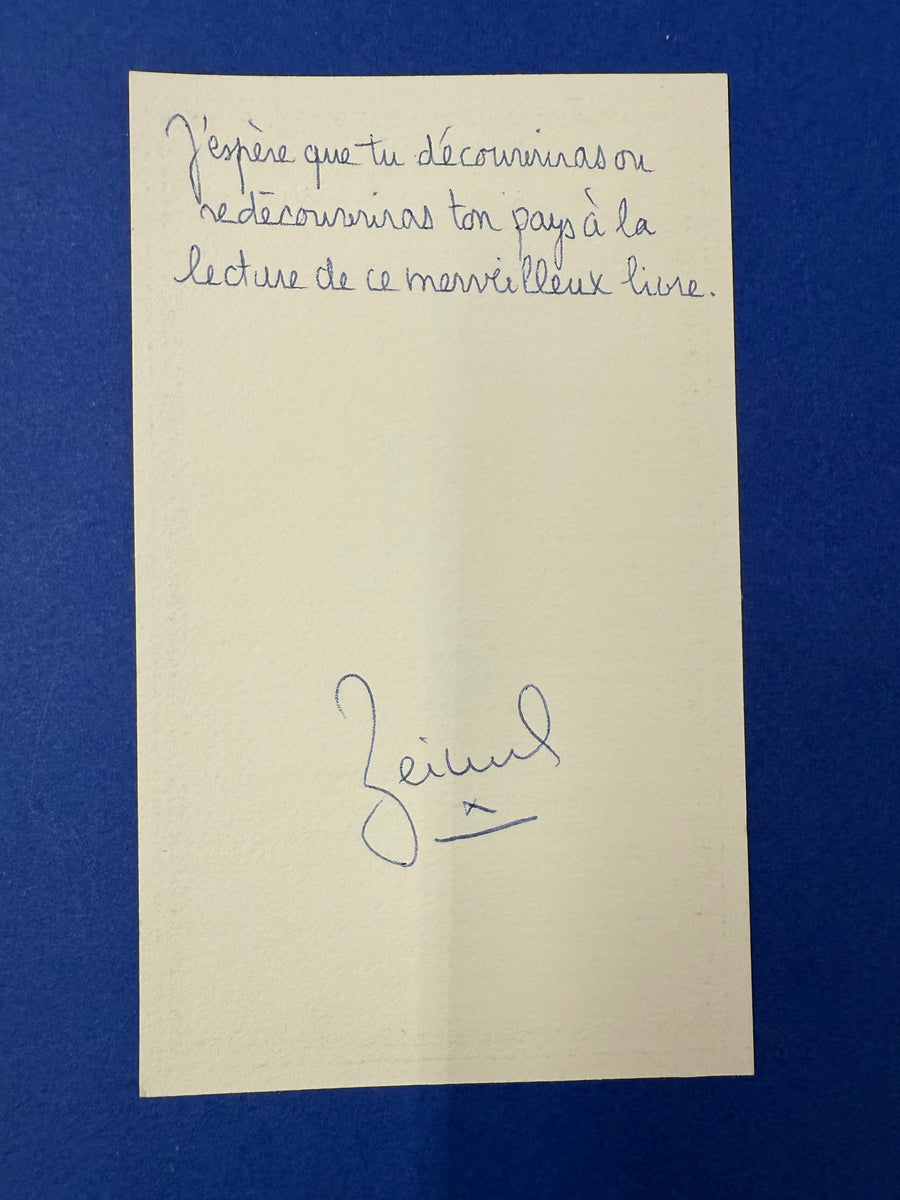 J'espère que tu découvriras ou
redécouvriras ton pays à la
lecture de ce merveilleux livre.